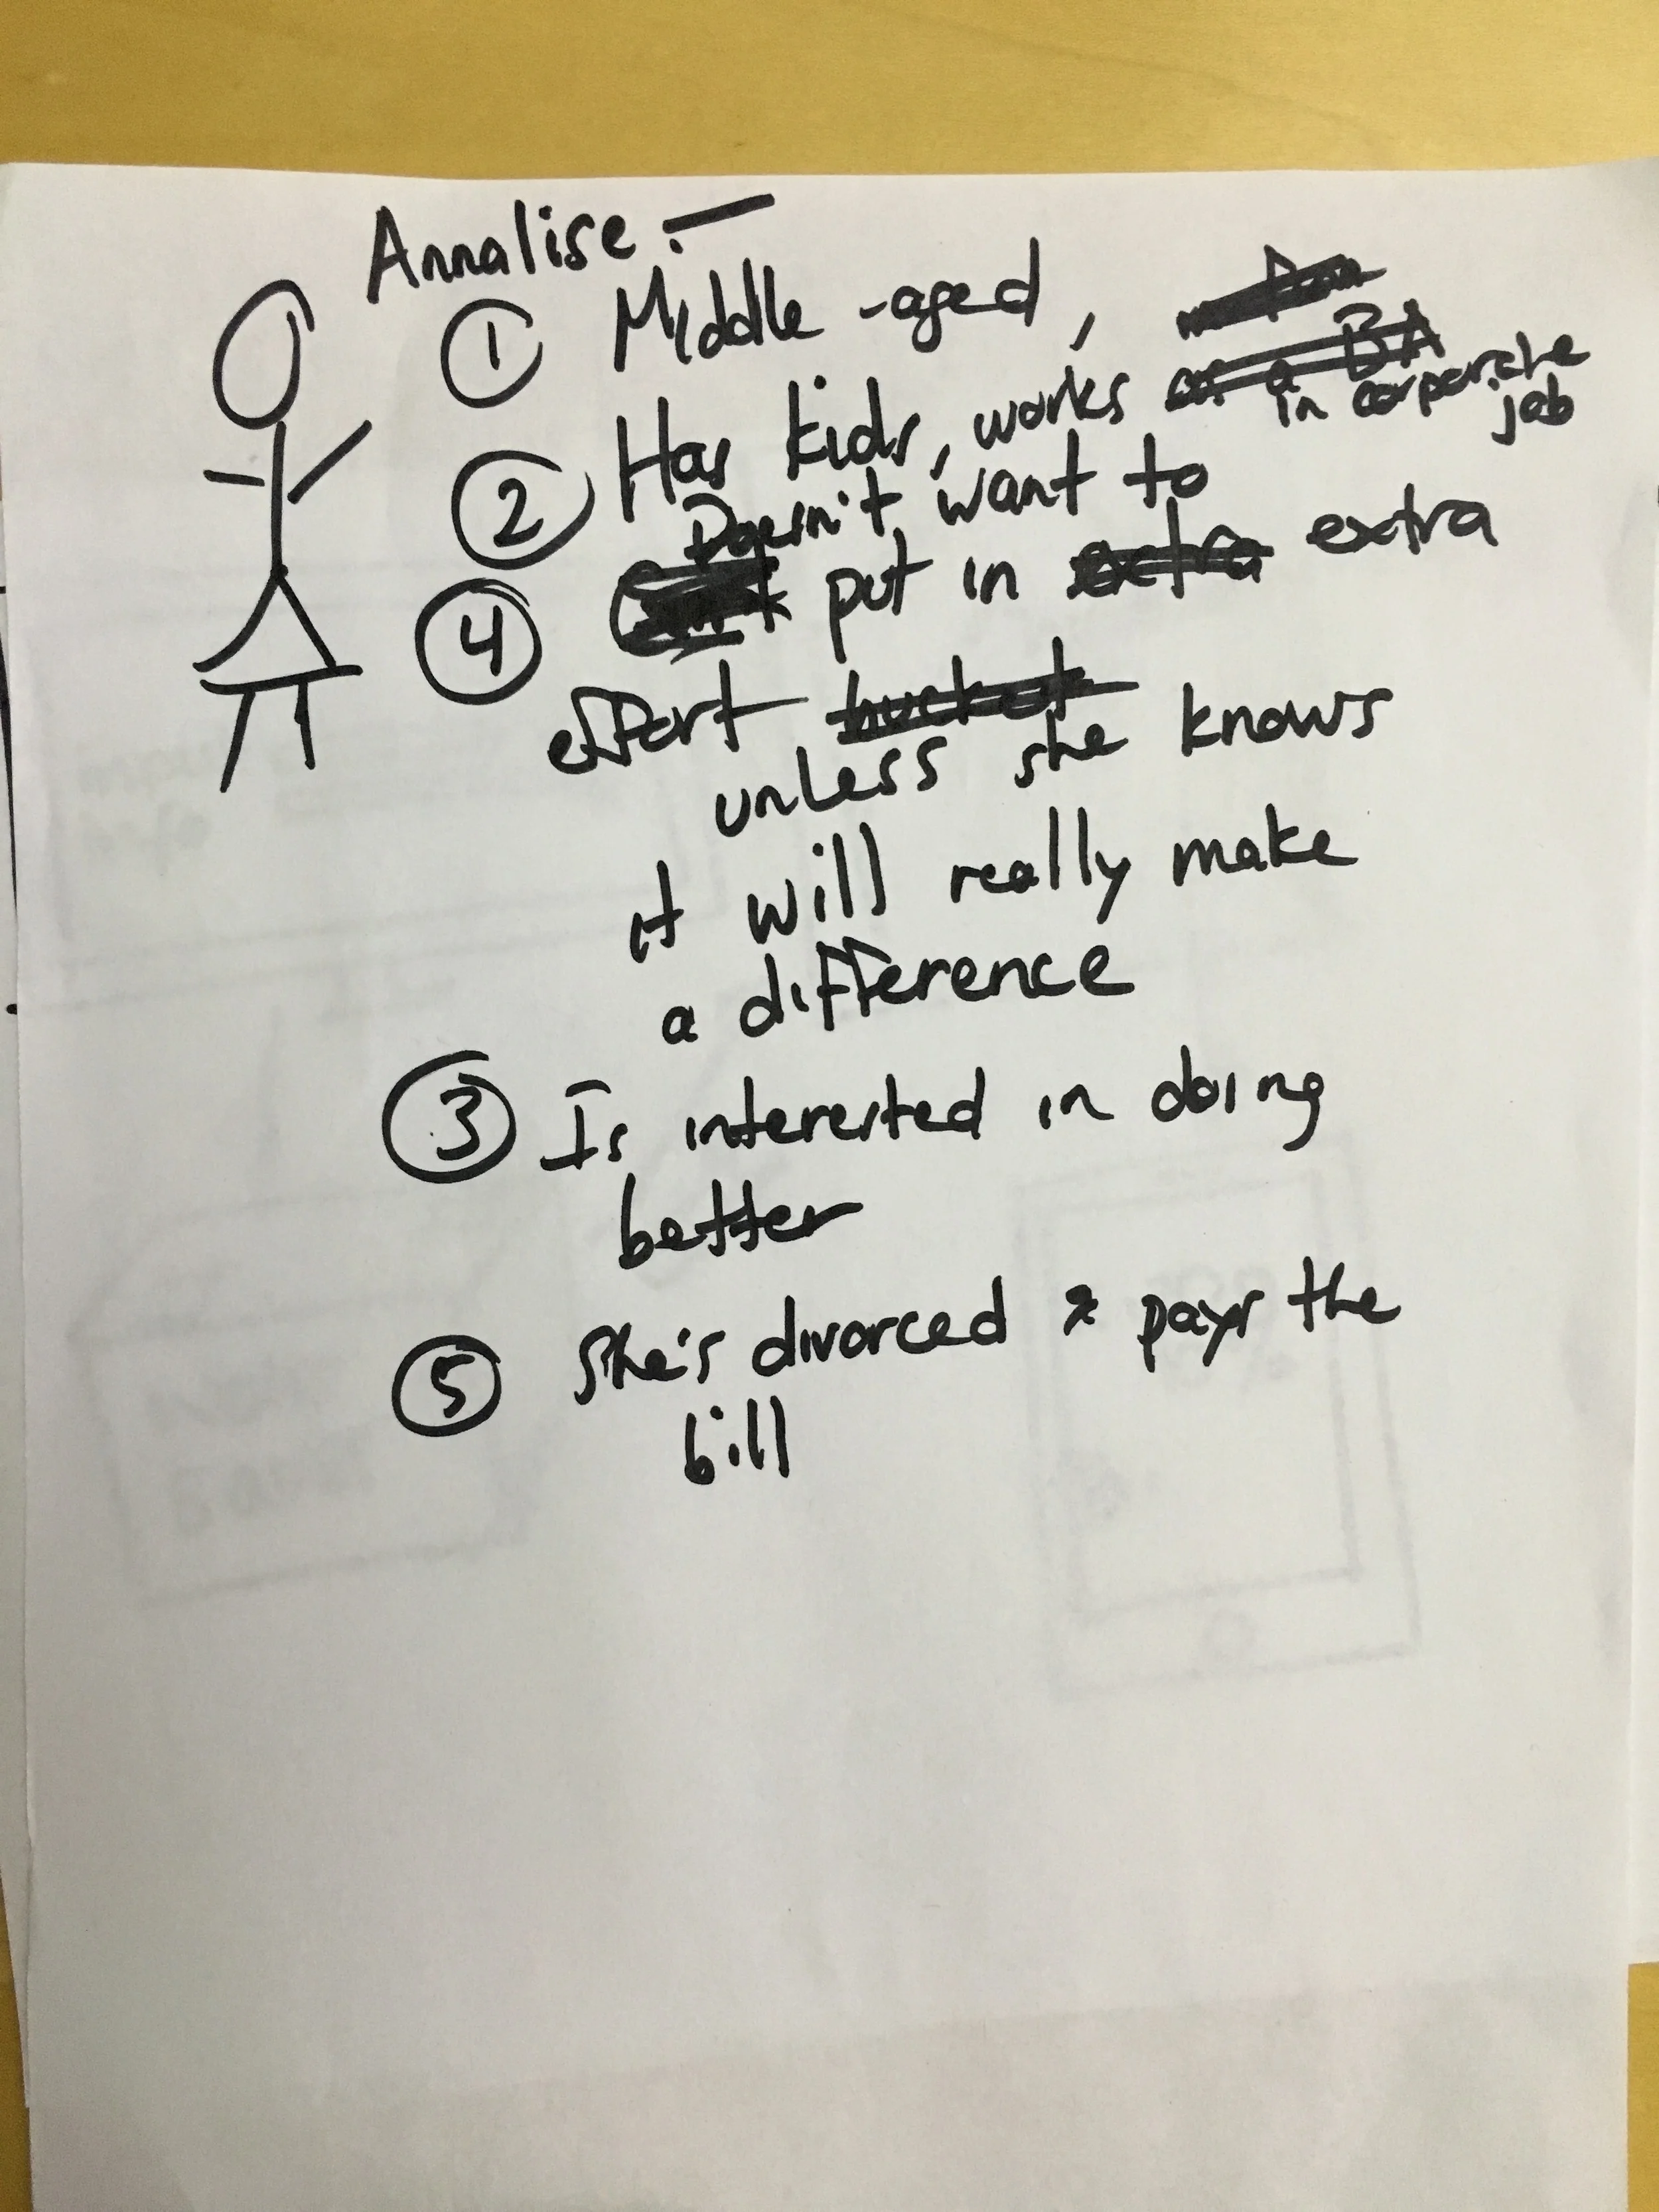 Annalise :-
① Middle-aged,
② Has kids, works as a BA in corporate job
Doesn't want to
④ put in extra extra
effort
unless she knows
it will really make
a difference
③ Is interested in doing
better
⑤ She's divorced & pays the
bill